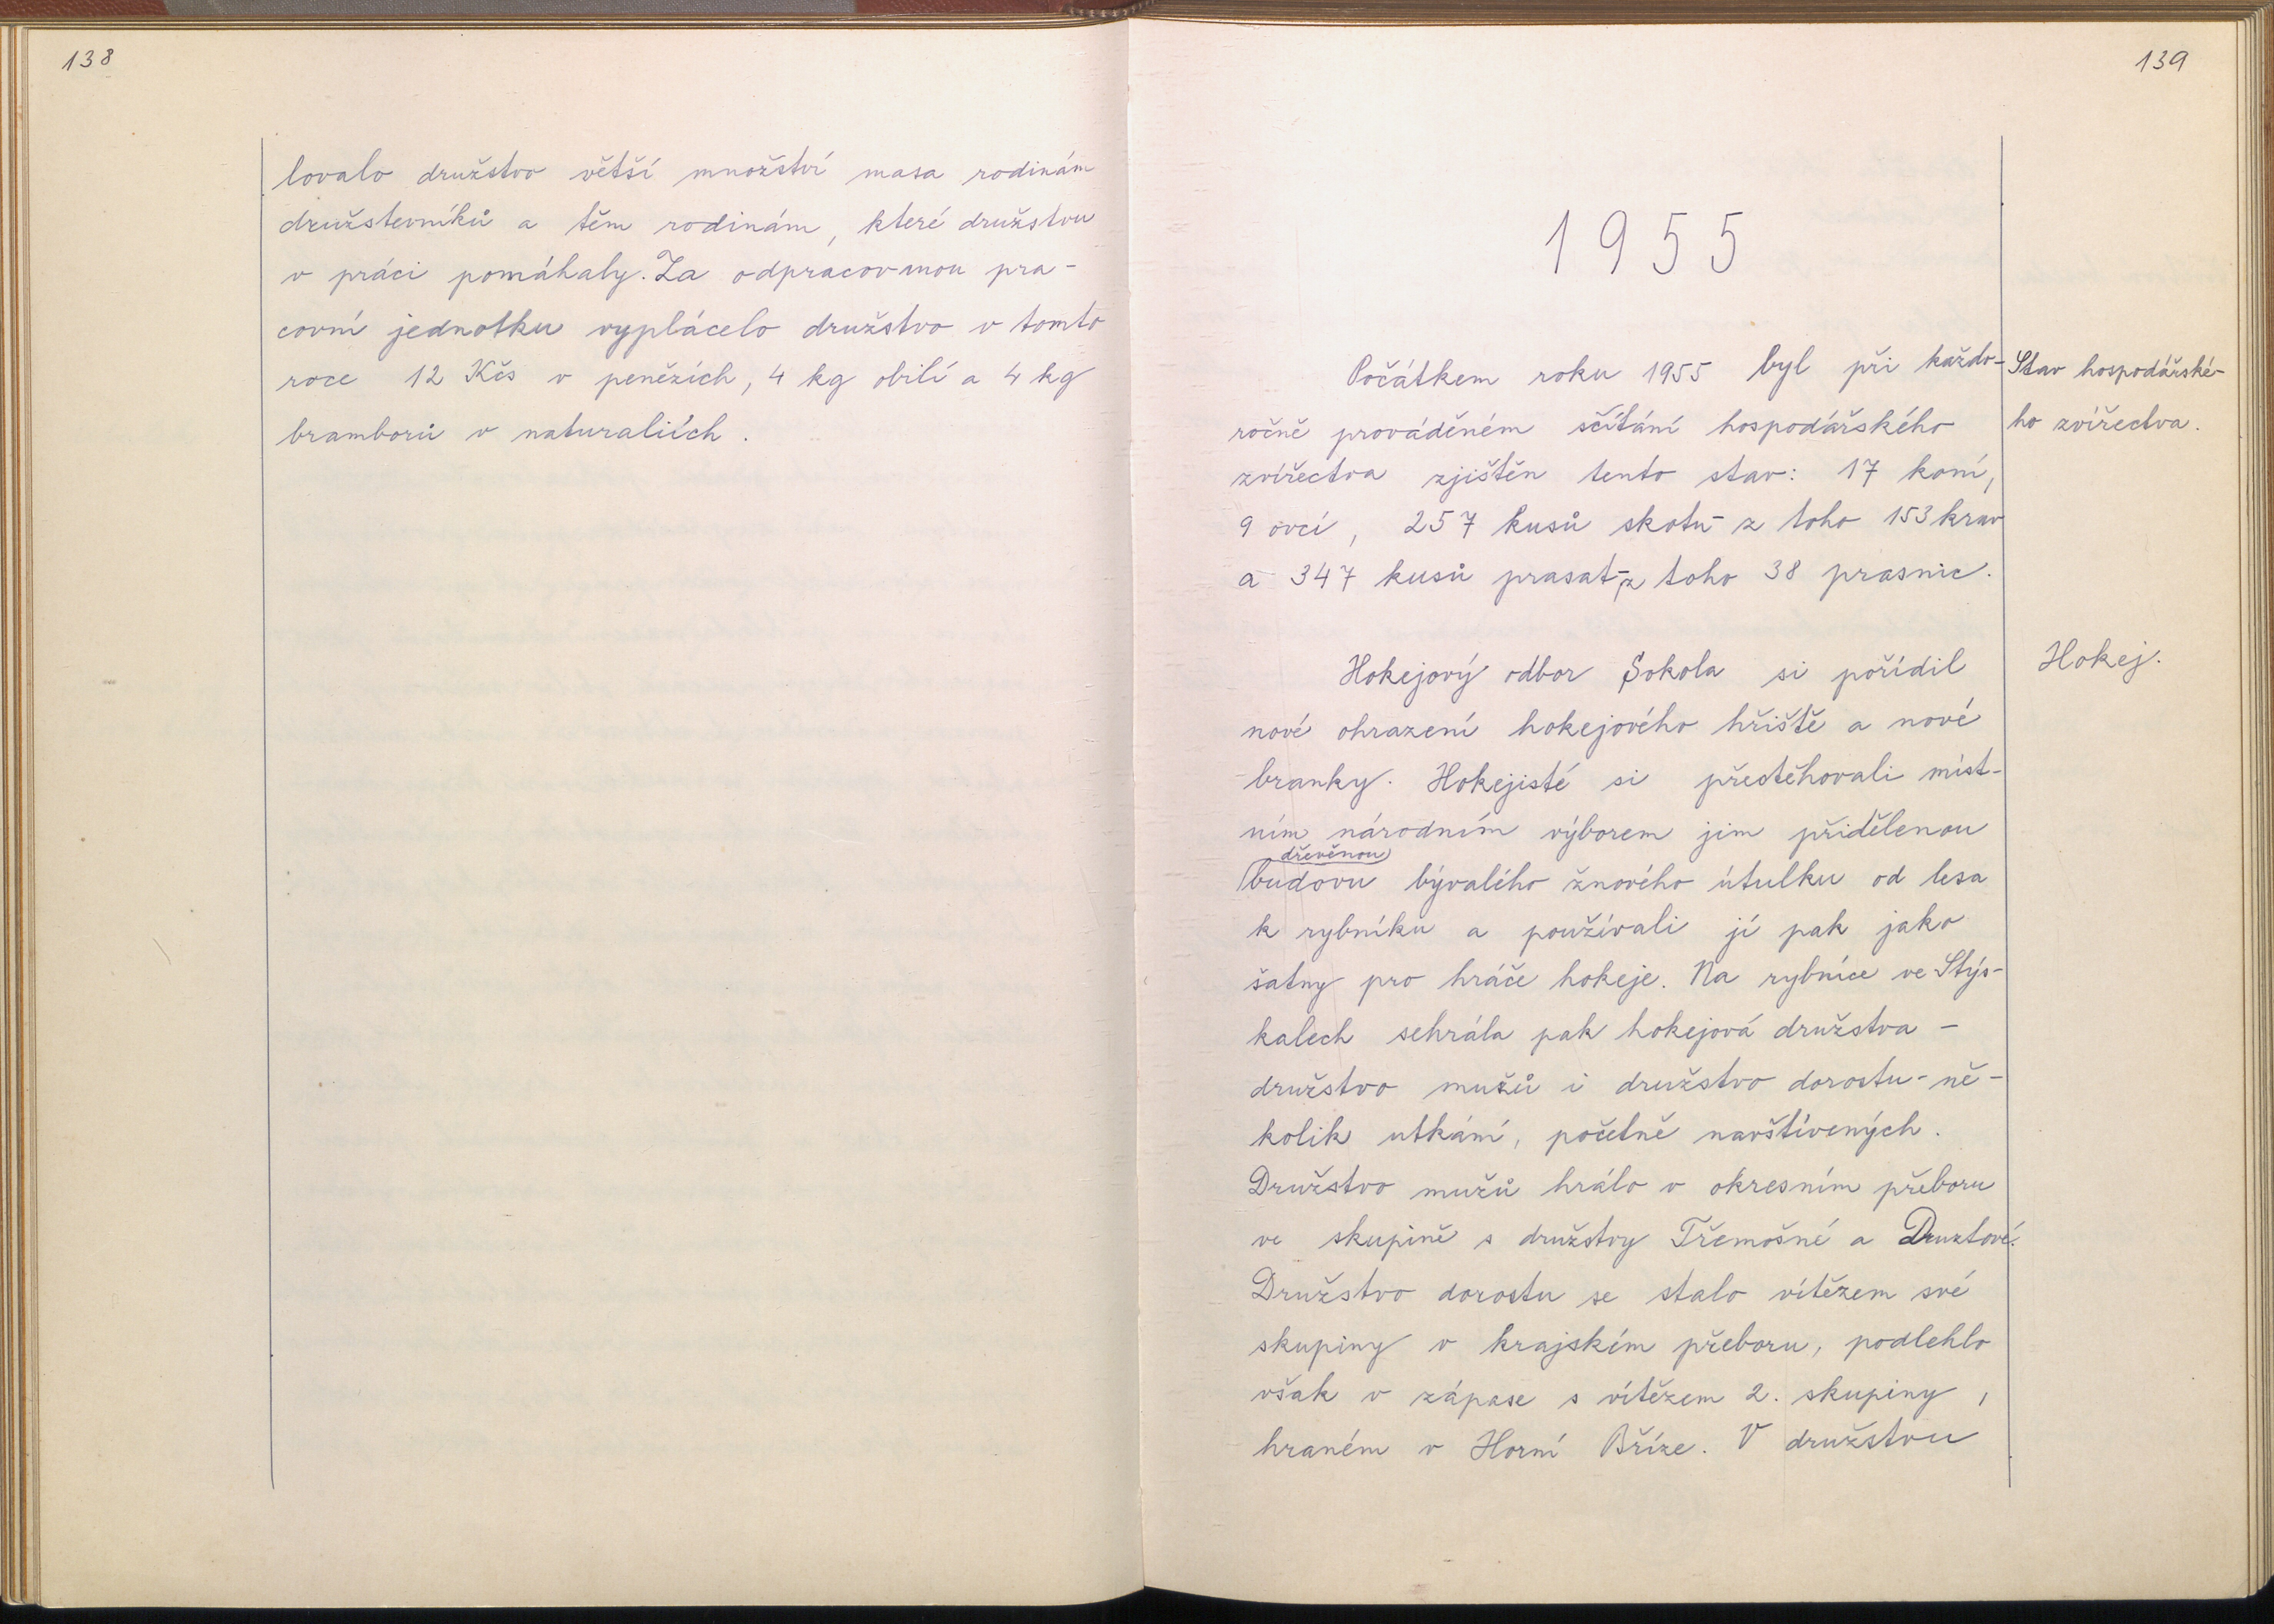 138
lovalo družstvo větší množství masa rodinám
družstevníků a těm rodinám, které družstvu
v práci pomáhaly. Za odpracovanou pra-
covní jednotku vyplácelo družstvo v tomto
roce 12 Kčs v penězích, 4 kg obilí a 4 kg
bramborů v naturaliích.
139
1955
Počátkem roku 1955 byl při každo-
ročně prováděném sčítání hospodářského
zvířectva zjištěn tento stav: 17 koní,
9 ovcí, 257 kusů skotu - z toho 153 krav
a 347 kusů prasat - z toho 38 prasnic.
Stav hospodářské-
ho zvířectva.
Hokejový odbor Sokola si pořídil
nové ohrazení hokejového hřiště a nové
branky. Hokejisté si přestěhovali míst-
ním národním výborem jim přidělenou
dřevěnou
budovu bývalého žňového útulku od lesa
k rybníku a používali jí pak jako
šatny pro hráče hokeje. Na rybníce ve Stýs-
kalech sehrála pak hokejová družstva -
družstvo mužů i družstvo dorostu - ně-
kolik utkání, početně navštívených.
Družstvo mužů hrálo v okresním přeboru
ve skupině s družstvy Třemošné a Druztové.
Družstvo dorostu se stalo vítězem své
skupiny v krajském přeboru, podlehlo
však v zápase s vítězem 2. skupiny,
hraném v Horní Bříze. V družstvu
Hokej.